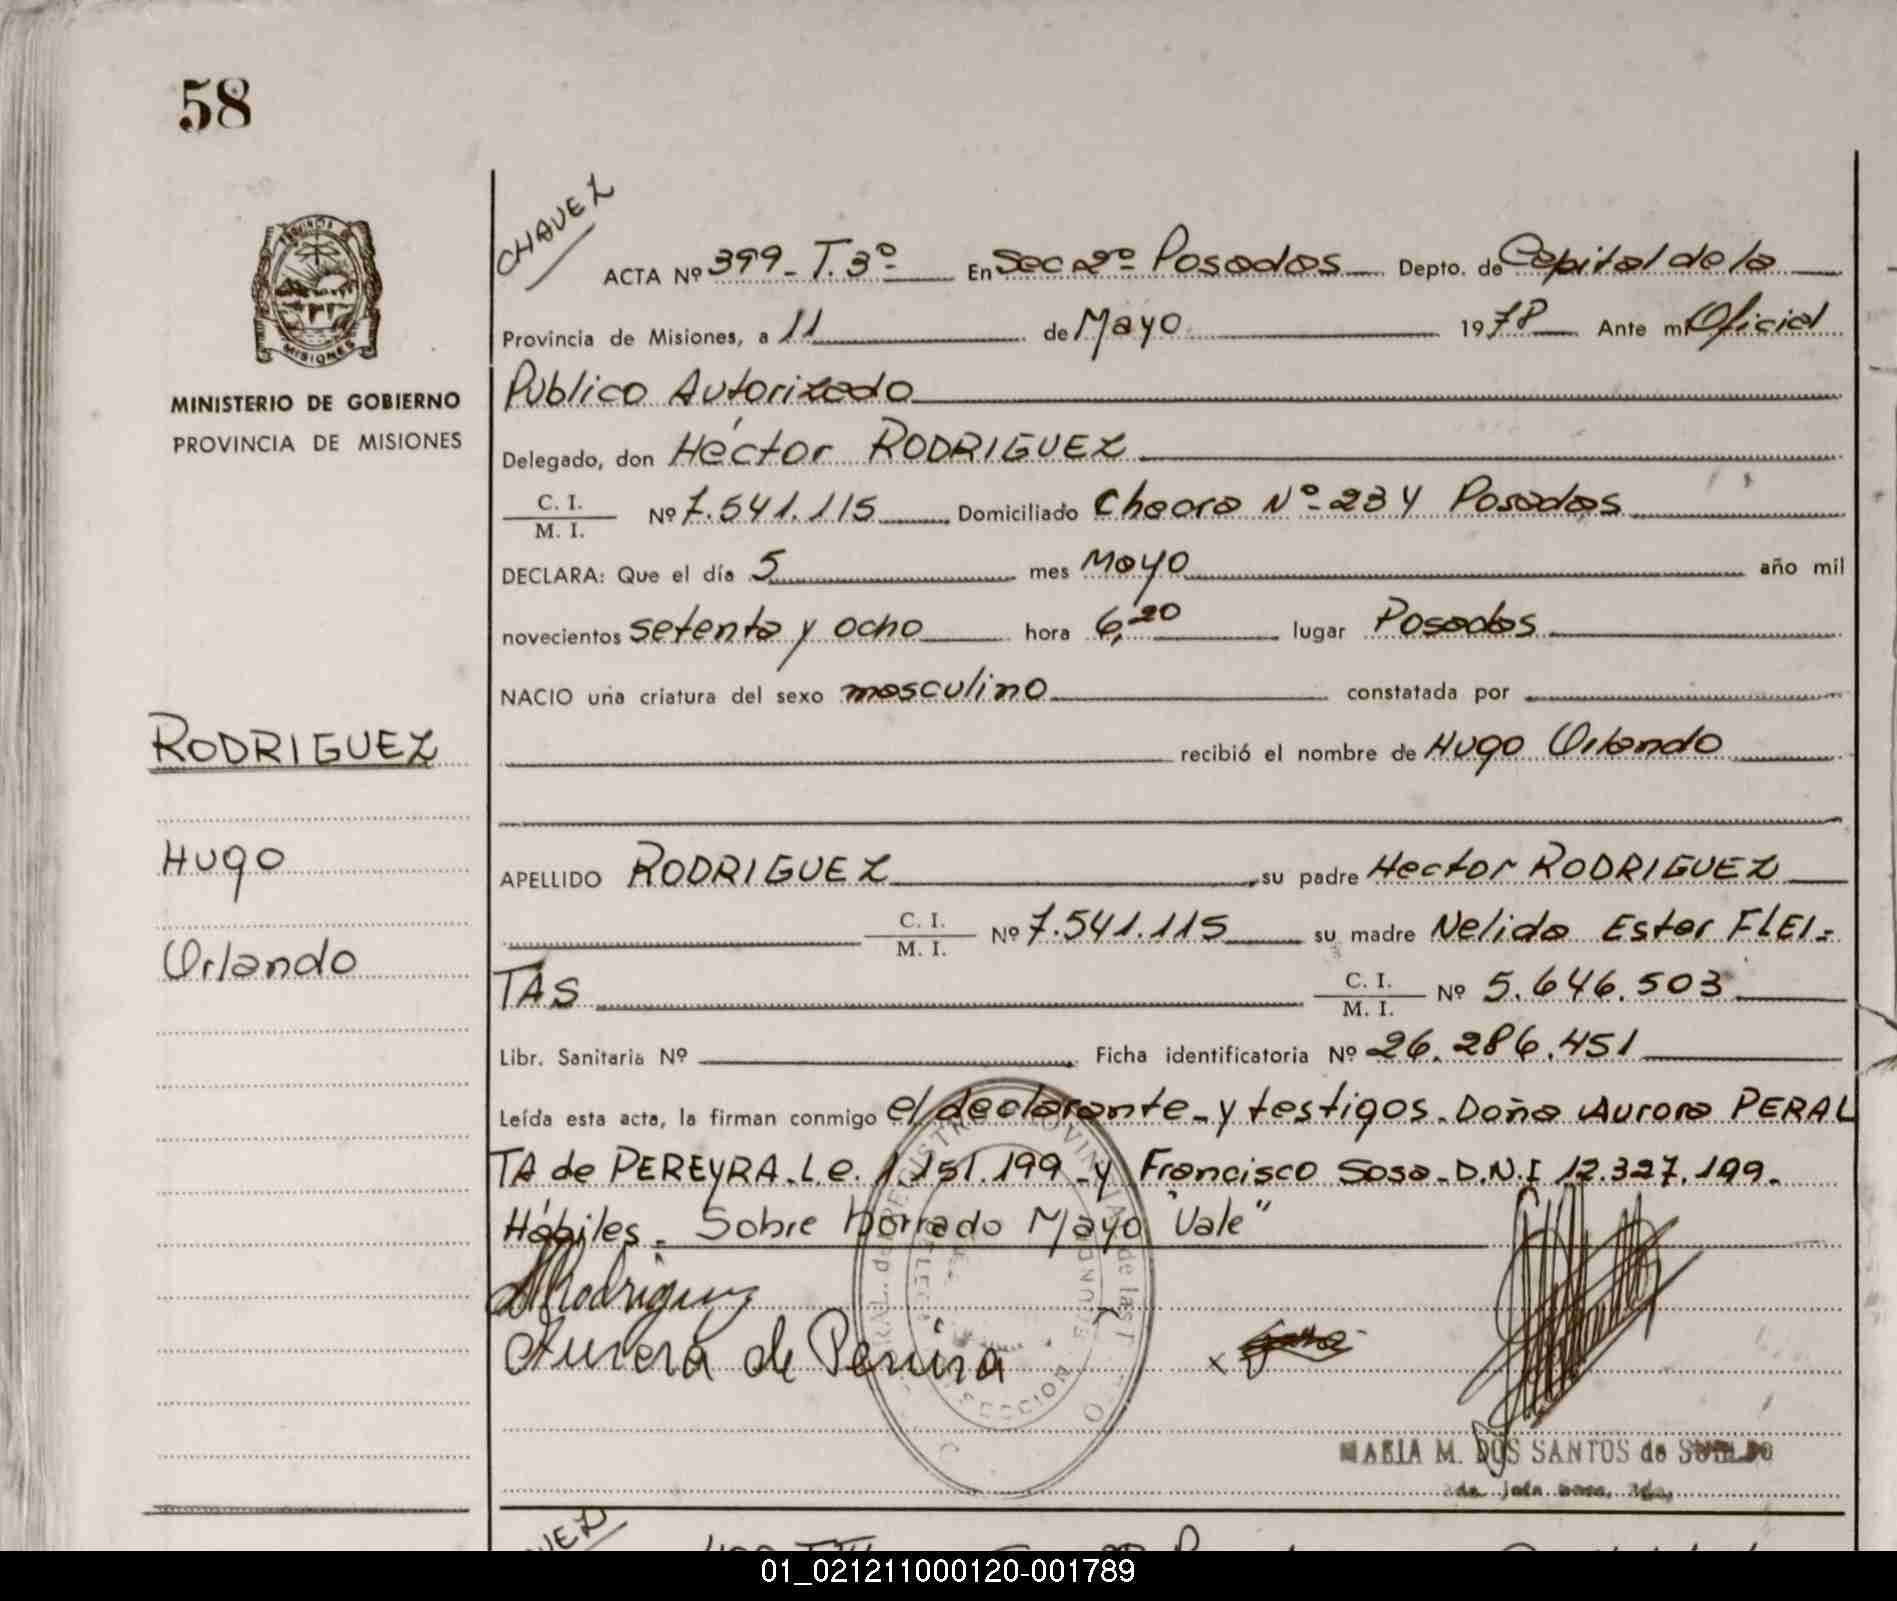 58
CHAVEZ
ACTA Nº 399_ T. 3º En Sec 2º Posadas Depto. de Capital de la
Provincia de Misiones, a 11 de Mayo 1978 Ante mi Oficial
Publico Autorizado
Delegado, don Héctor RODRIGUEZ
C. I.
M. I.
Nº 7.541.115 Domiciliado Chacra Nº 234 Posadas
DECLARA: Que el día 5 mes Mayo año mil
novecientos setenta y ocho hora 6,20 lugar Posadas
NACIO una criatura del sexo masculino constatada por
recibió el nombre de Hugo Orlando
APELLIDO RODRIGUEZ su padre Hector RODRIGUEZ
C. I.
M. I.
Nº 7.541.115 su madre Nelida Ester FLEI-
TAS
C. I.
M. I.
Nº 5.646.503
Libr. Sanitaria Nº Ficha identificatoria Nº 26.286.451
Leída esta acta, la firman conmigo el declarante_y testigos_Doña Aurora PERAL
TA de PEREYRA_L.e. 1.151.199_y Francisco Sosa_D.N.I 12.327.199.
Hábiles_ Sobre borrado Mayo "Vale"
HRodriguez
Aurora de Pereira
x
MARIA M. DOS SANTOS de
PROVINCIA DE MISIONES
MISIONES
MINISTERIO DE GOBIERNO
PROVINCIA DE MISIONES
RODRIGUEZ
Hugo
Orlando
01_021211000120-001789